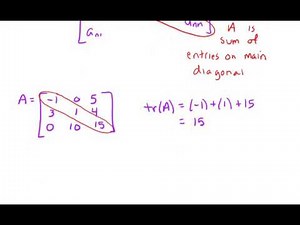 a_nn
a_n1
A is
sum of
entries on main
diagonal
A = [ -1 0 5
3 1 4
0 10 15 ]
tr(A) = (-1)+(1)+15
= 15